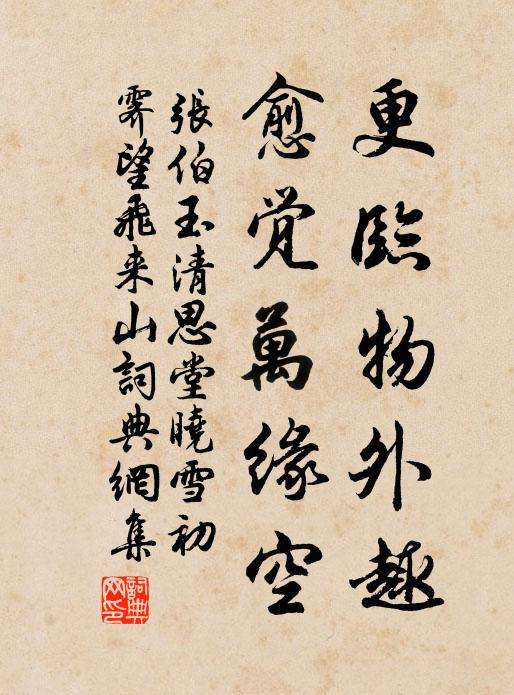 更臨物外趣
愈觉萬緣空
張伯玉清思堂曉雪初
霽望飛来山詞典網集
詞典網印